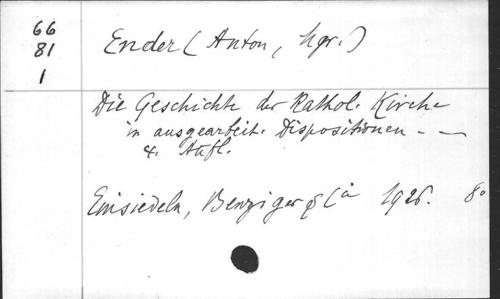 66
81
1
Ender (Anton, hgr.)
Die Geschichte der Kathol. Kirche
in ausgearbeit. Dispositionen - —
4. Aufl.
Einsiedeln, Benziger & Cie 1926. 8°